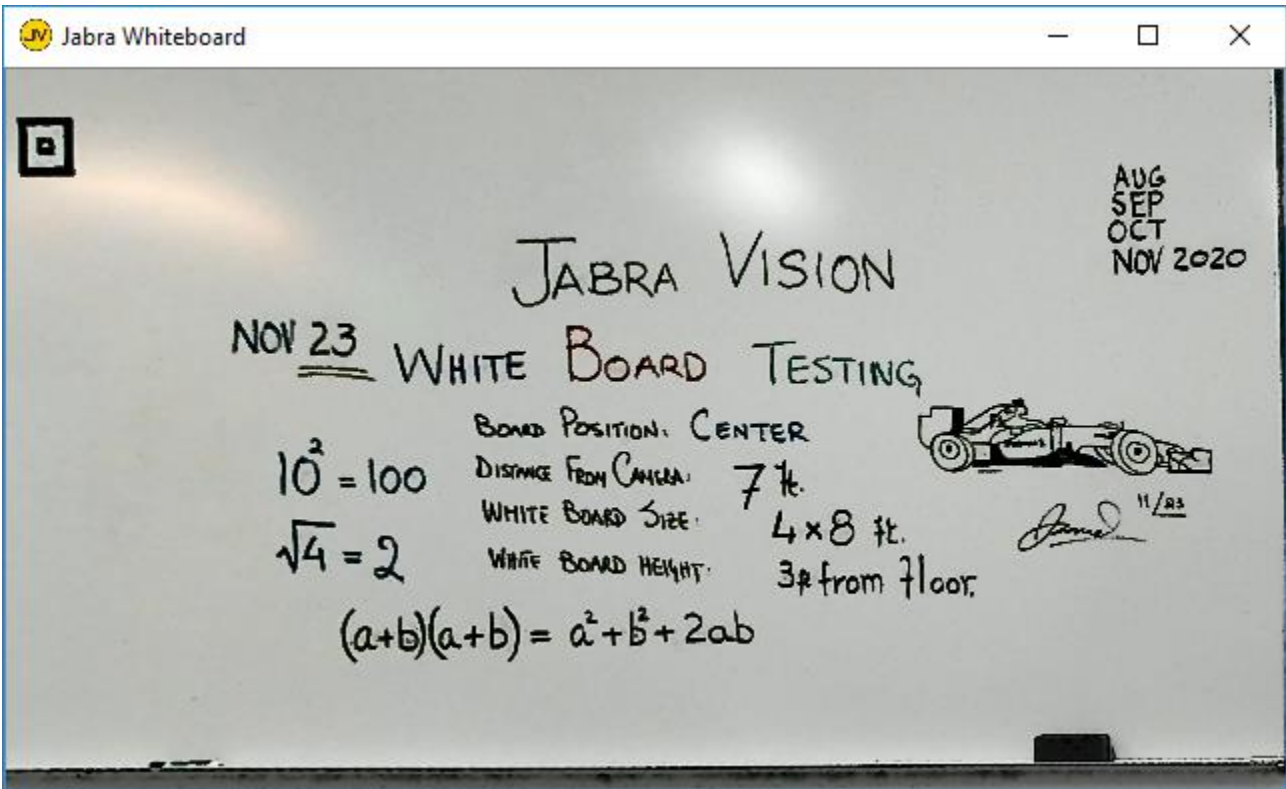 Jabra Whiteboard
AUG
SEP
OCT
NOV 2020
JABRA VISION
NOV 23
WHITE BOARD TESTING
BOARD POSITION: CENTER
10² = 100
DISTANCE FROM CAMERA: 7 ft.
WHITE BOARD SIZE: 4 x 8 ft.
√4 = 2
WHITE BOARD HEIGHT: 3ft from floor.
(a+b)(a+b) = a² + b² + 2ab
11/23